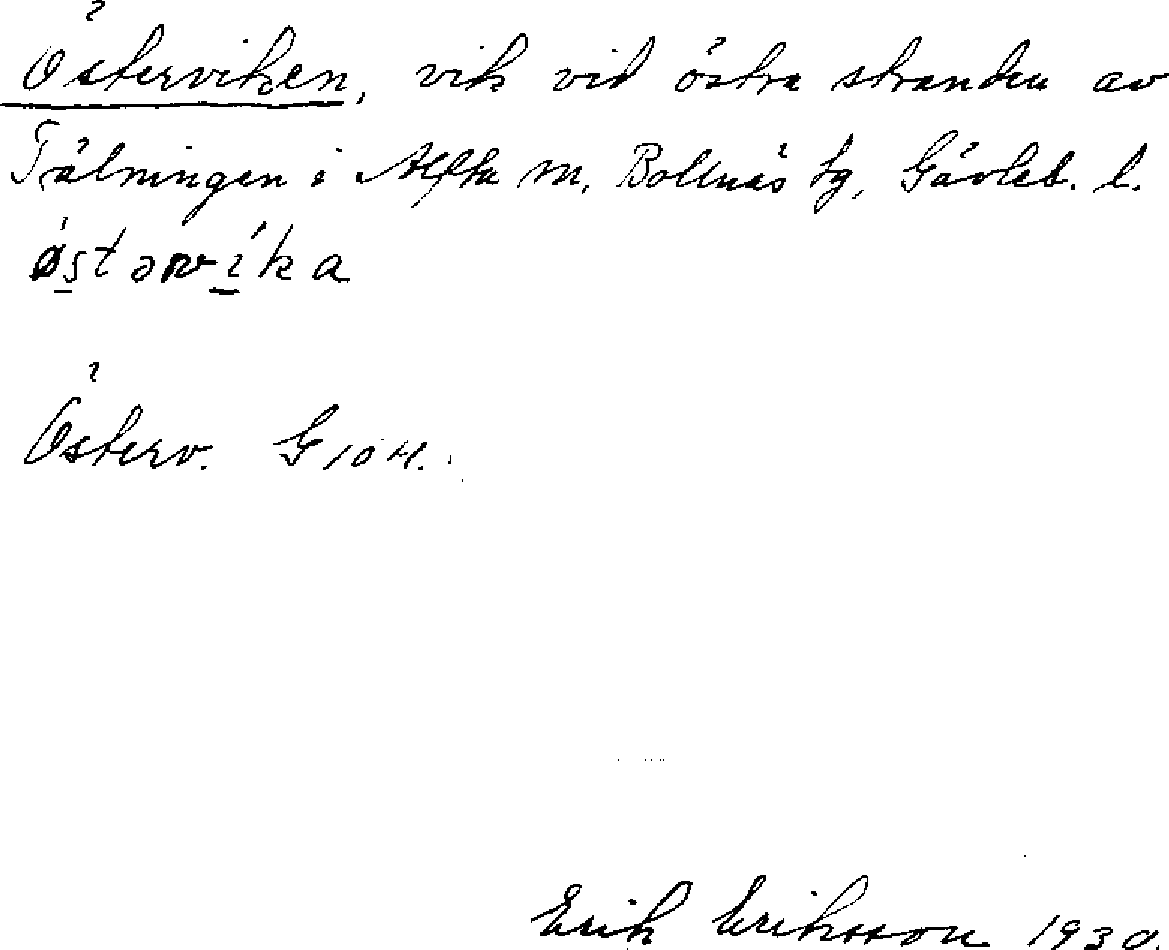 Österviken, vik vid östra stranden av
Tälningen i Alfta sn, Bollnäs tg, Gävleb. l.
østərvika
Österv. G 104.
Erik Eriksson 1930.